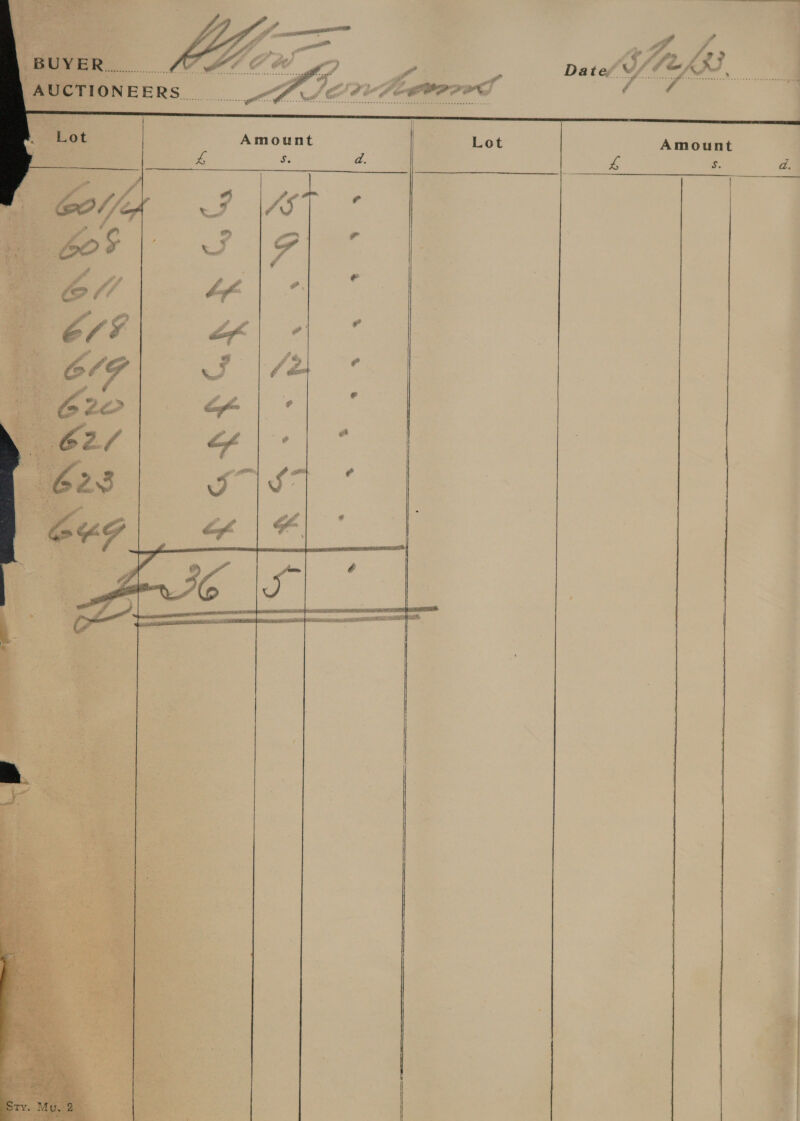 BUYER
AUCTIONEERS Bonhams
Date 13/12/33.
Lot Amount Lot Amount
£ s. d. £ s. d.
601/4 3 15 "
608 3 9 "
611 4 " "
618 4 " "
619 3 12 "
620 4 " "
621 4 " "
623 5 5 "
649 4 4 "
£36 5 "
Sty. Mu. 2